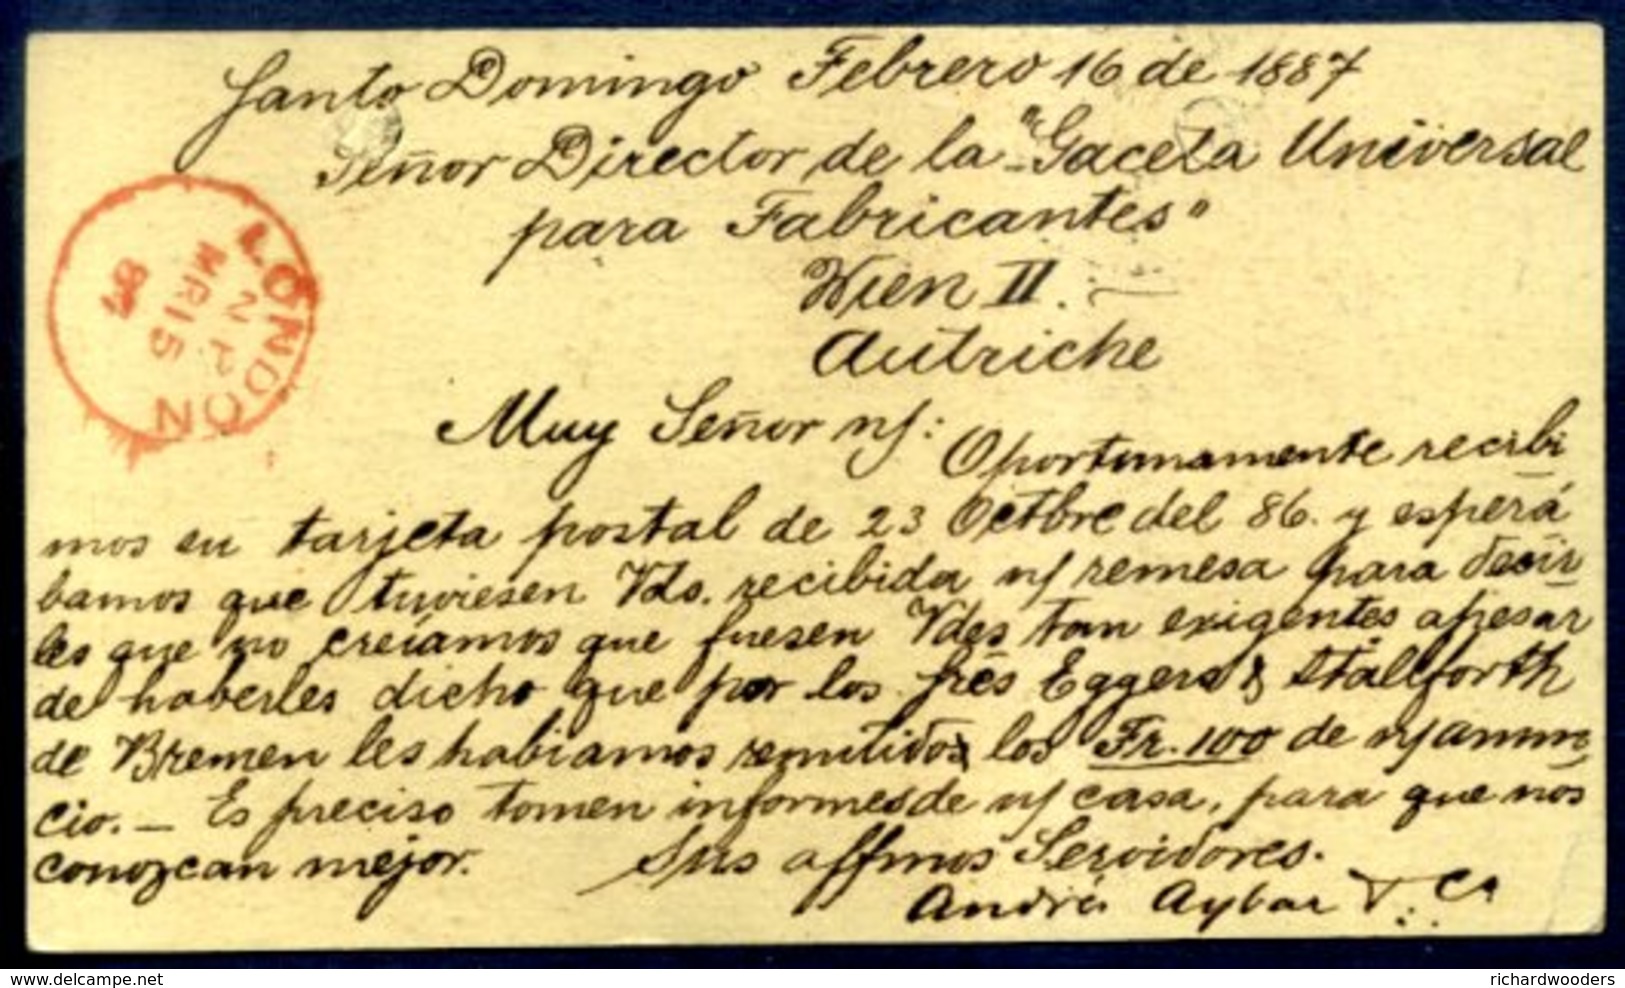 Santo Domingo Febrero 16 de 1887
Señor Director de la "Gaceta Universal
para Fabricantes"
Wien II.
Autriche
LONDON
N P
MR 15
87
Muy Señor n/: Oportunamente recibi
mos su tarjeta postal de 23 Octbre del 86. y esperá
bamos que tuviesen Vds. recibida n/ remesa para decir
les que no creíamos que fuesen Vdes tan exigentes apesar
de haberles dicho que por los Sres Eggers & Stallforth
de Bremen les habiamos remitido los Fr. 100 de n/ anun
cio. — Es preciso tomen informes de n/ casa, para que nos
conozcan mejor. Sus affmos Servidores.
Andrés Aybar & Ca
delcampe.net
richardwooders